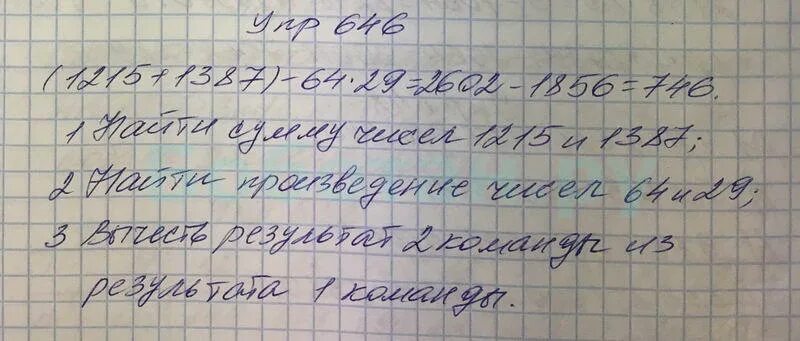 Упр 646
(1215+1387)-64·29=2602-1856=746.
1 Найти сумму чисел 1215 и 1387;
2 Найти произведение чисел 64 и 29;
3 Вычесть результат 2 команды из
результата 1 команды.